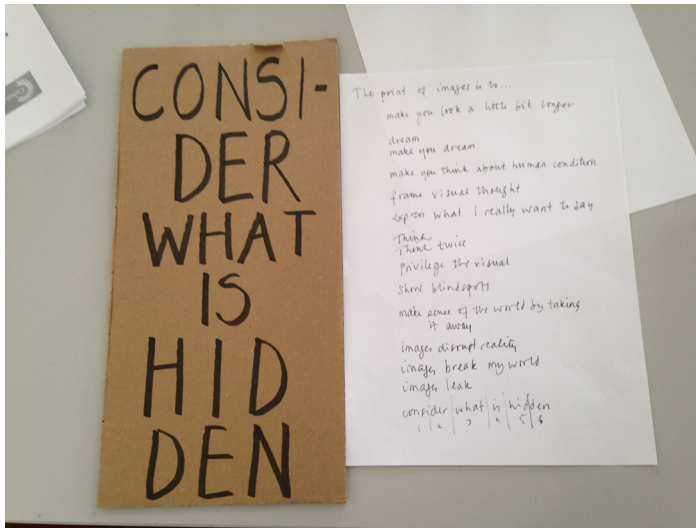 CONSI-
DER
WHAT
IS
HID
DEN
The point of images is to...
make you look a little bit longer
dream
make you dream
make you think about human condition
frame visual thought
express what I really want to say
Think
Think twice
privilege the visual
show blindspots
make sense of the world by taking
it away
images disrupt reality
images break my world
images leak
consider | what | is | hidden
1 2 3 4 5 6